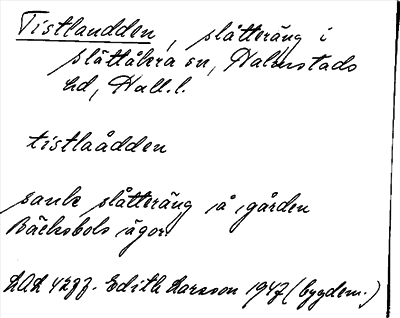 Tistlaudden, slåtteräng i
Slättåkra sn, Halmstads
hd, Hall.l.
tistlaådden
sank slåtteräng på gården
Bäckabols ägor
LAL Edith Larsson 1947 (bygdem.)